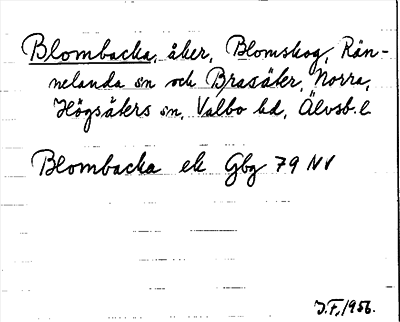 Blombacka, åker, Blomskog, Rän-
nelanda sn och Brasäter, Norra,
Högsäters sn, Valbo hd, Älvsb. l
Blombacka ek Gbg 79 NV
J.F. 1956.